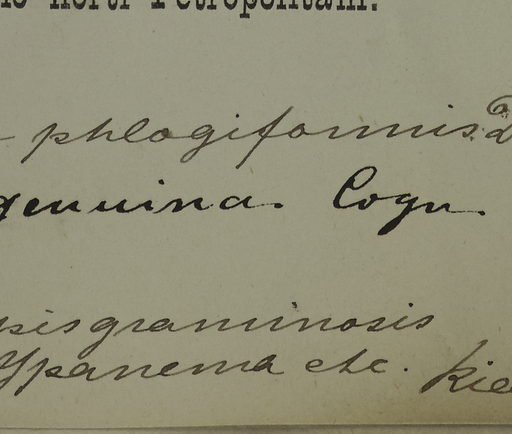 horti Petropolitani.
phlogiformis D
genuina. Cogn.
graminosis
Ypanema etc. Rie